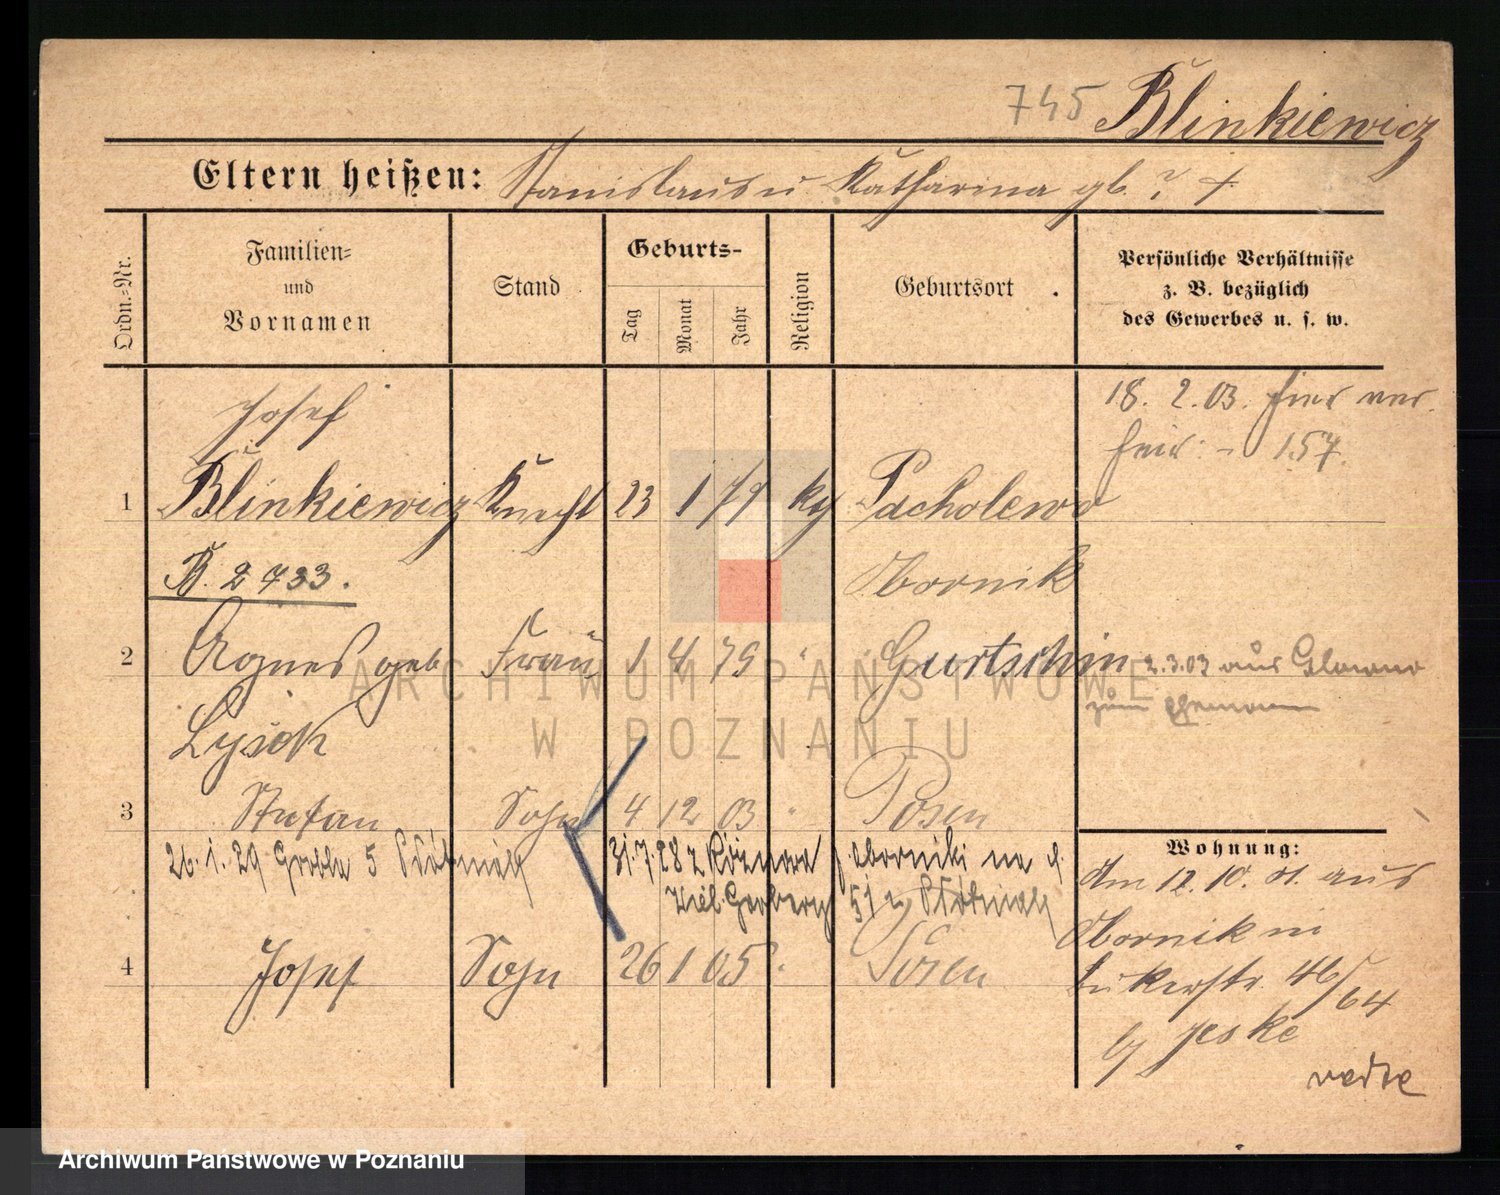 745 Blinkiewicz
Eltern heißen: Stanislaus u Katharina gb. ? †
Ordn.=Nr.
Familien=
und
Vornamen
Stand
Geburts-
Tag
Monat
Jahr
Religion
Geburtsort
Persönliche Verhältnisse
z. B. bezüglich
des Gewerbes u. s. w.
Josef
18. 2. 03. hier ver.
heir. - 157.
1 Blinkiewicz Knecht 23 1 79 kt Pacholewo
B. 2733. Obornik
2 Agnes geb Frau 1 4 79 " Gurtschin 2.3.03 aus
zum Ehemann
Lysiak
3 Stefan Sohn 4 12 03 " Posen
26. 1. 29 Grobla 5
31.7.28 z p. Oborniki na
51
4 Josef Sohn 26 1 05 " Posen
Wohnung:
Am 12. 10. 01. aus
Obornik in
46/64
by Jeske
ARCHIWUM PAŃSTWOWE
W POZNANIU
Archiwum Państwowe w Poznaniu